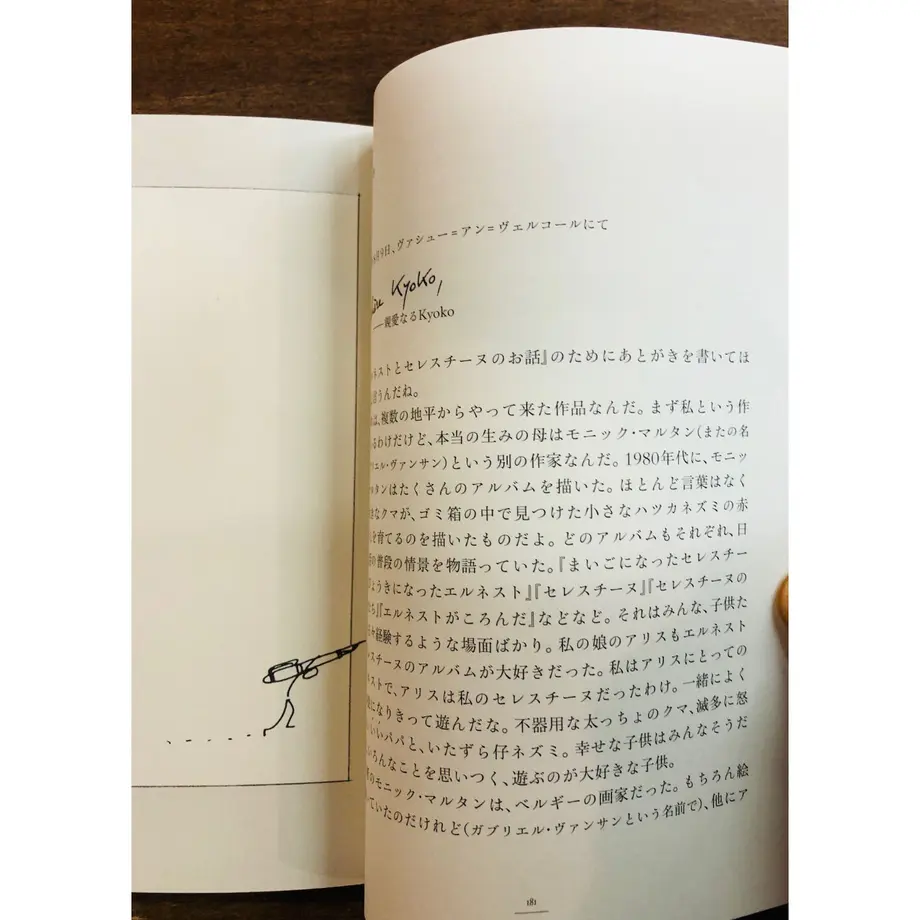 月9日、ヴァシュー=アン=ヴェルコールにて
Kyoko,
──親愛なるKyoko
ネストとセレスチーヌのお話』のためにあとがきを書いてほ
言うんだね。
は、複数の地平からやって来た作品なんだ。まず私という作
るわけだけど、本当の生みの母はモニック・マルタン(またの名
ブリエル・ヴァンサン)という別の作家なんだ。1980年代に、モニッ
ルタンはたくさんのアルバムを描いた。ほとんど言葉はなく
なクマが、ゴミ箱の中で見つけた小さなハツカネズミの赤
を育てるのを描いたものだよ。どのアルバムもそれぞれ、日
の普段の情景を物語っていた。『まいごになったセレスチー
びょうきになったエルネスト』『セレスチーヌ』『セレスチーヌの
ち』『エルネストがころんだ』などなど。それはみんな、子供た
経験するような場面ばかり。私の娘のアリスもエルネスト
レスチーヌのアルバムが大好きだった。私はアリスにとっての
ストで、アリスは私のセレスチーヌだったわけ。一緒によく
になりきって遊んだな。不器用な太っちょのクマ、滅多に怒
いいパパと、いたずら仔ネズミ。幸せな子供はみんなそうだ
ろんなことを思いつく、遊ぶのが大好きな子供。
のモニック・マルタンは、ベルギーの画家だった。もちろん絵
ていたのだけれど(ガブリエル・ヴァンサンという名前で)、他にア
181